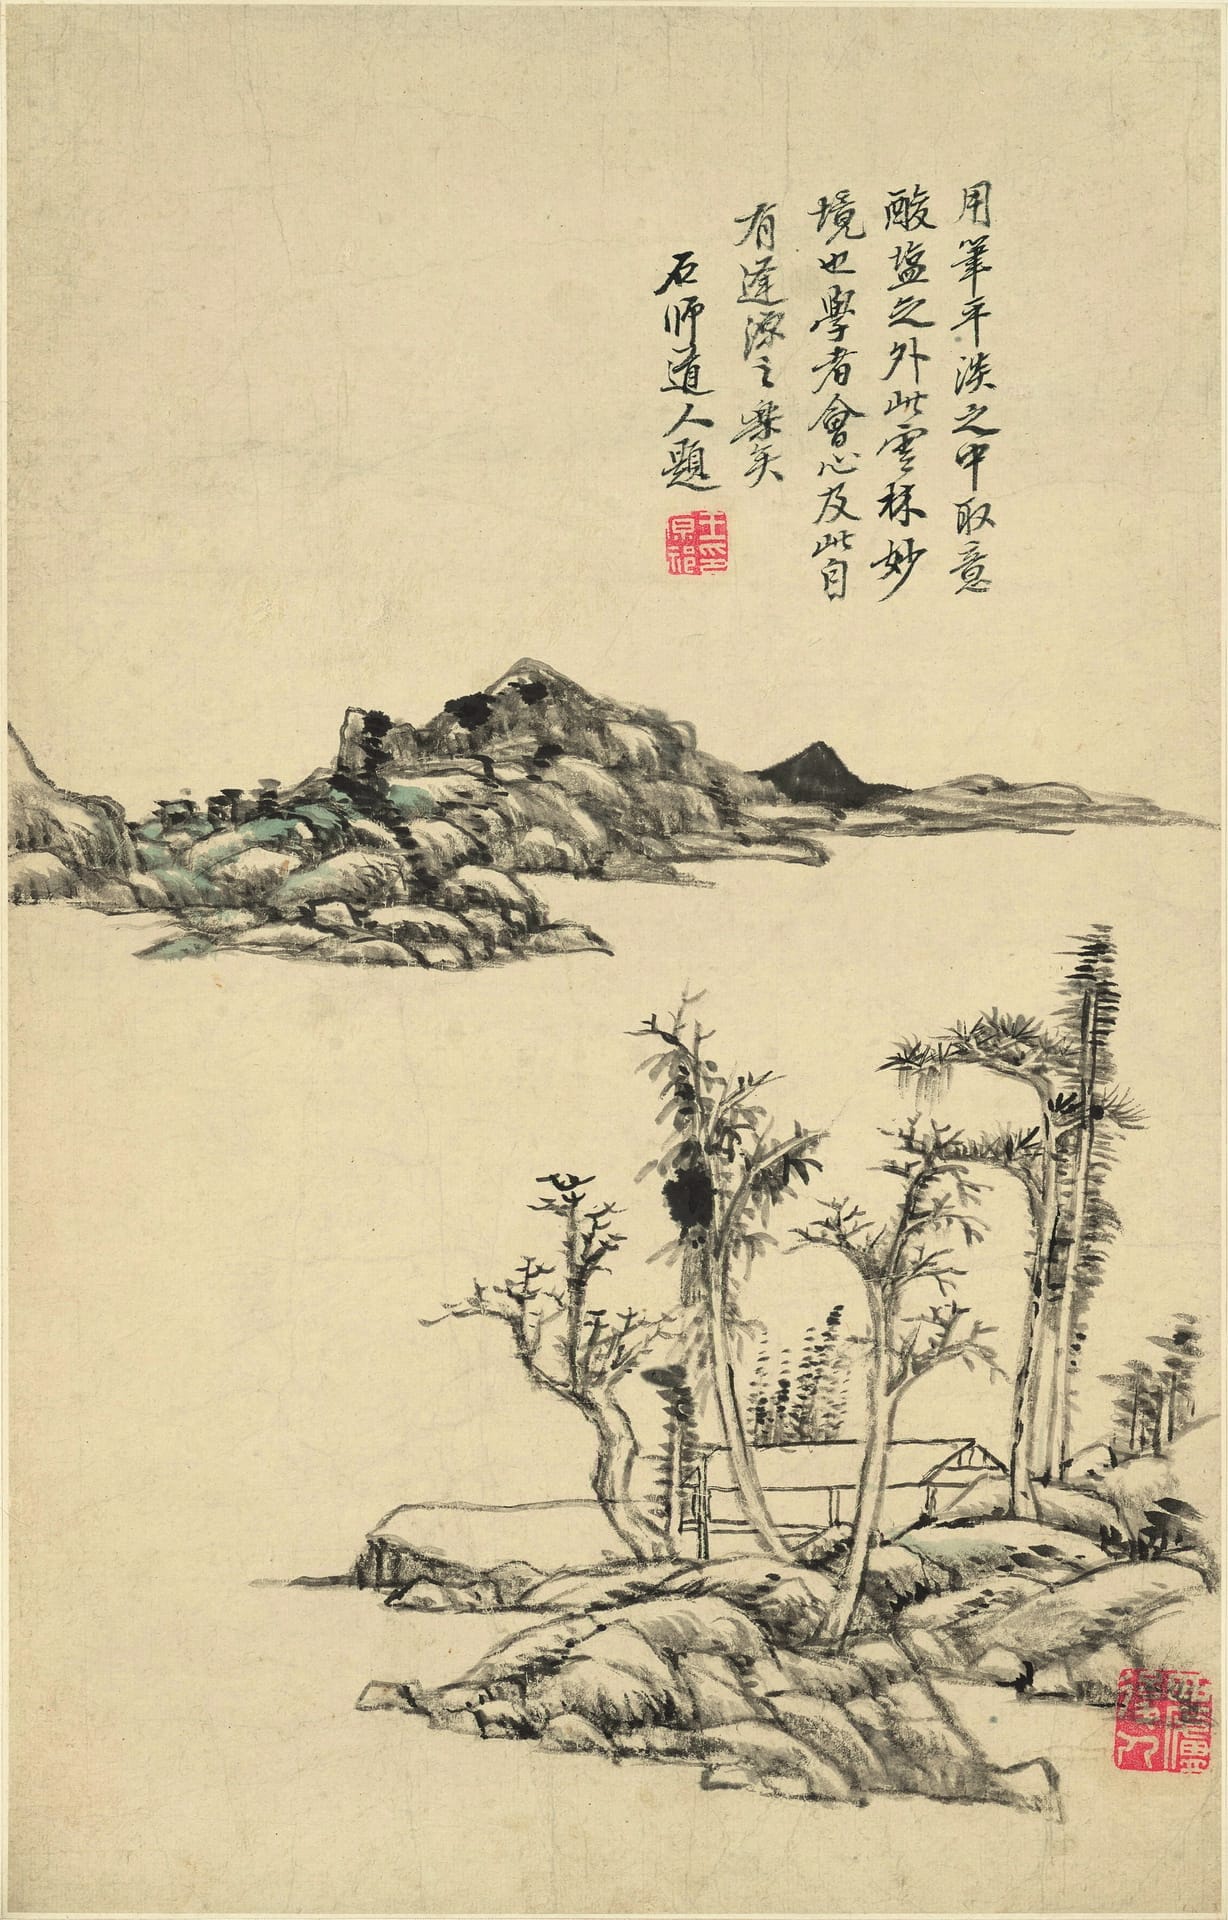 用筆平淡之中取意
酸塩之外此雲林妙
境也學者會心及此自
有逢源之樂矣
石師道人題
王原祁印
西廬後人